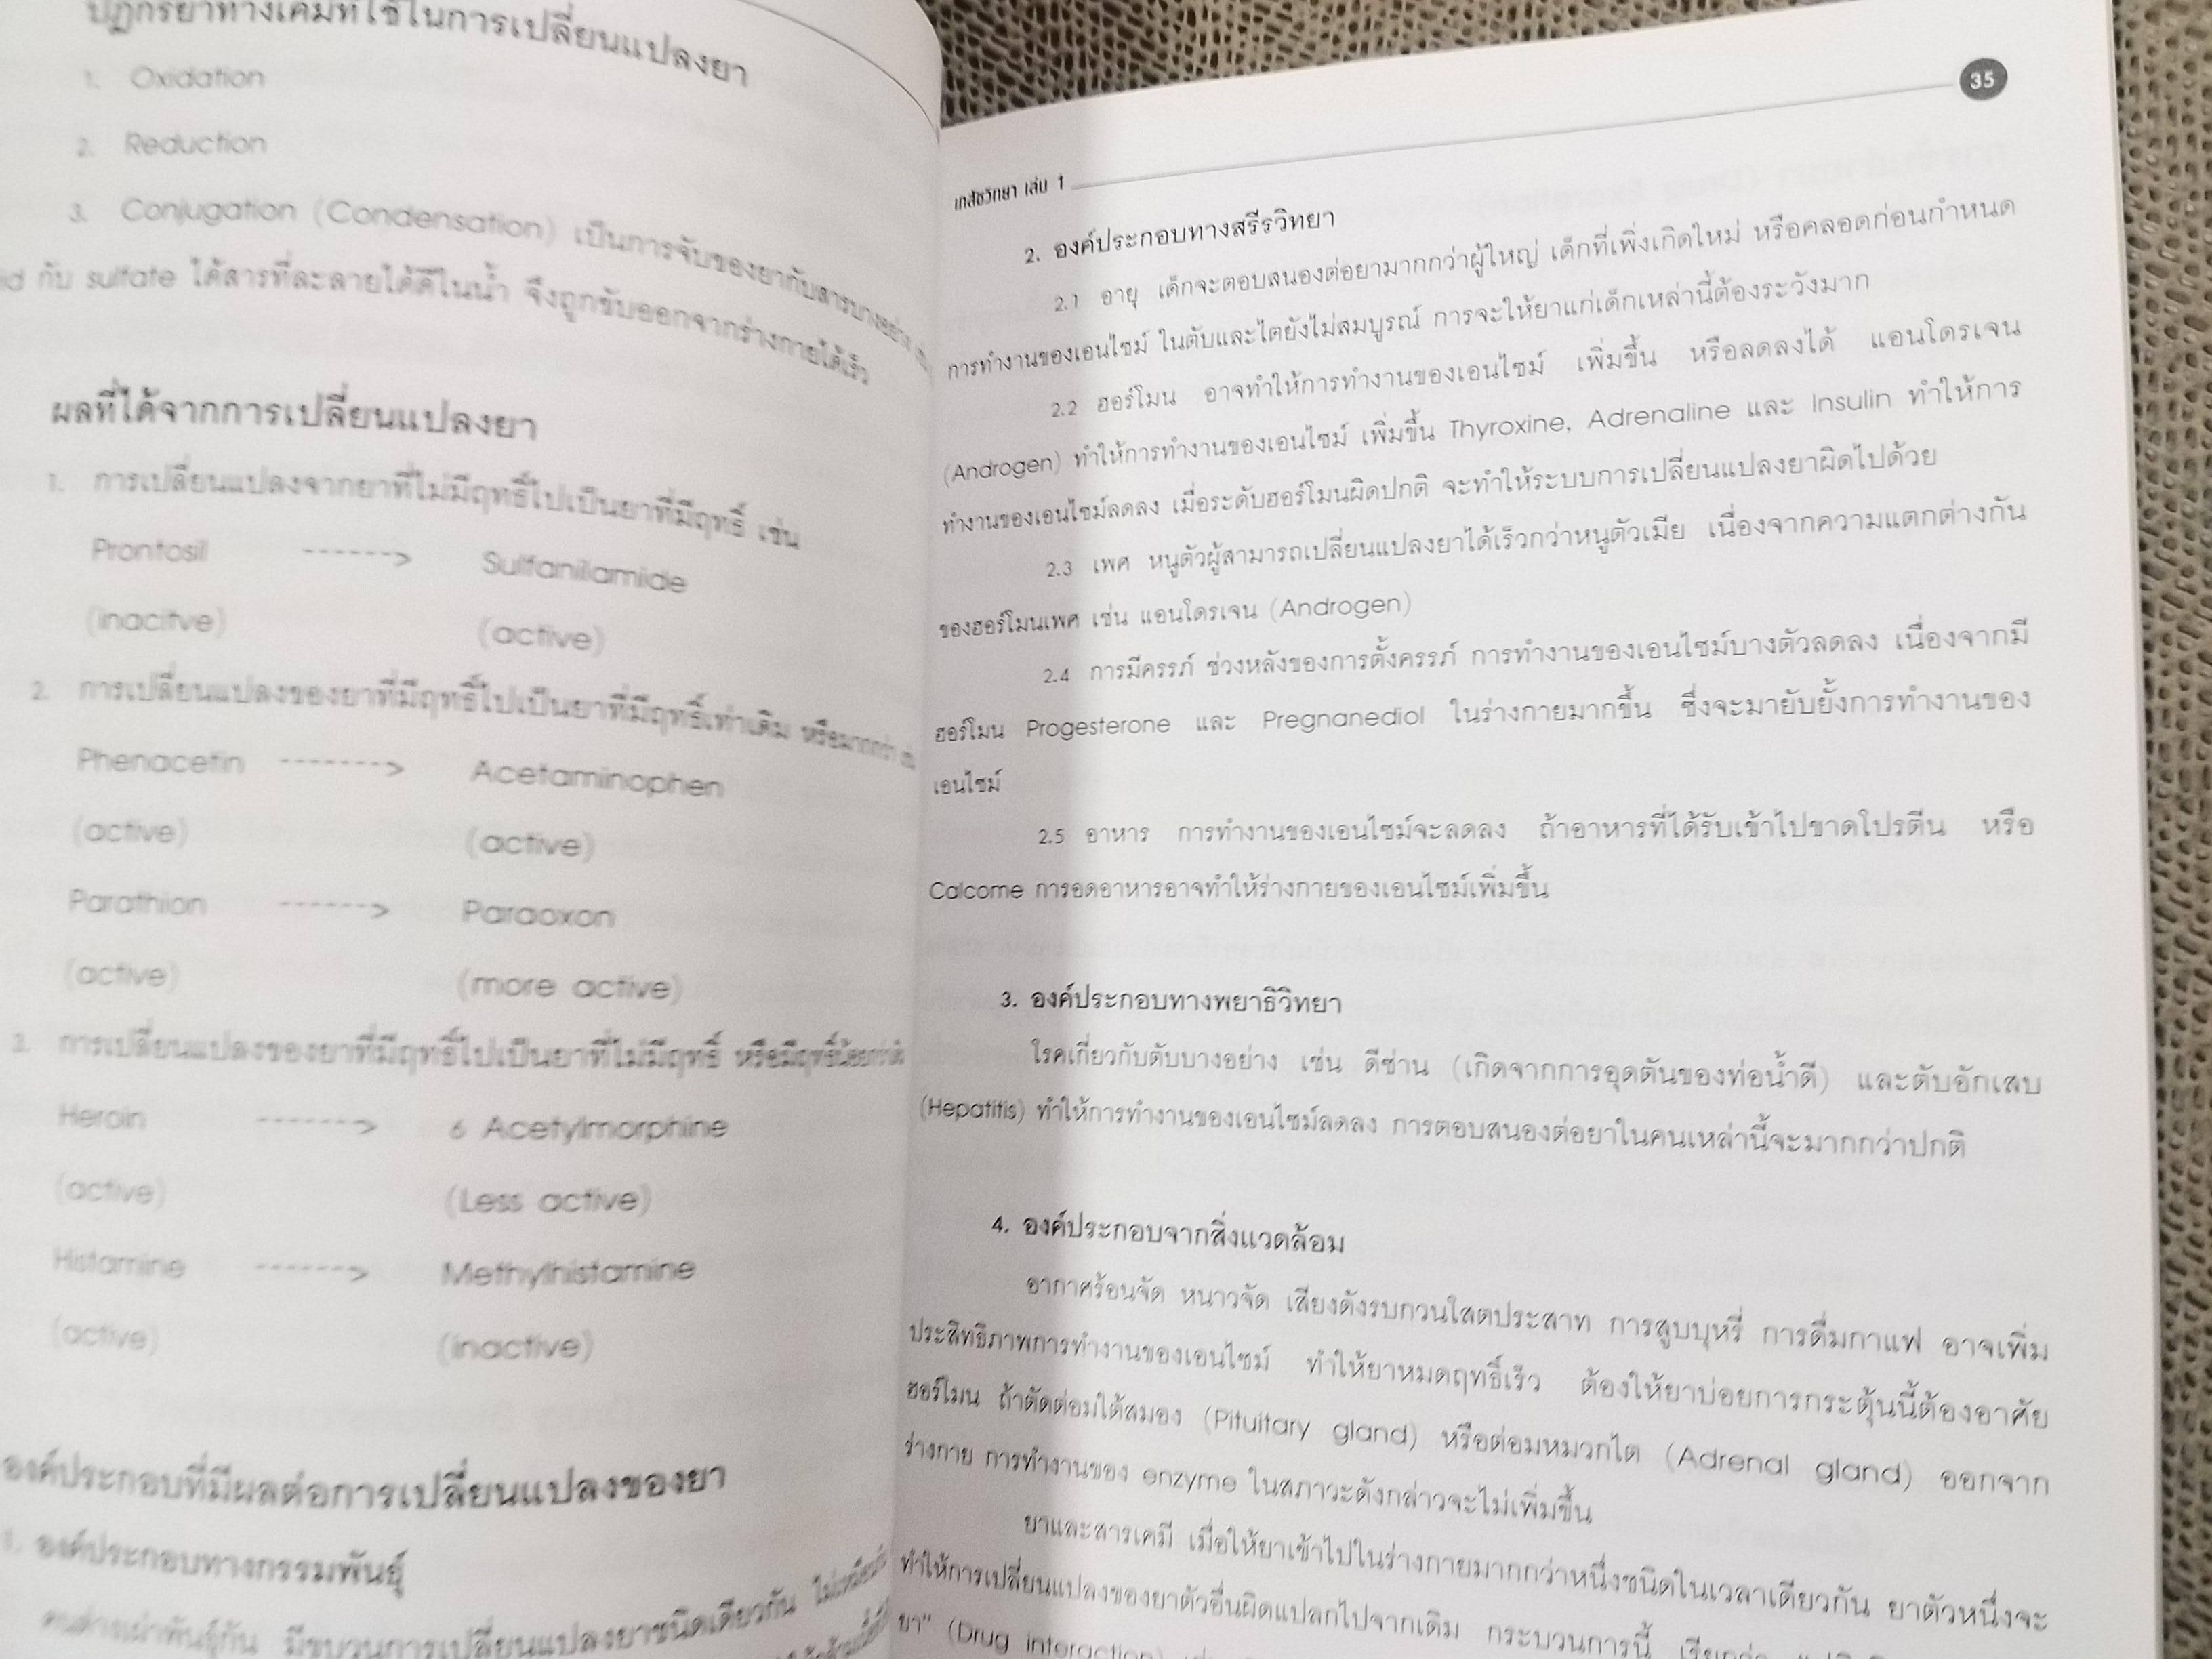 ปฏิกิริยาทางเคมีที่ใช้ในการเปลี่ยนแปลงยา
1. Oxidation
2. Reduction
3. Conjugation (Condensation) เป็นการจับของยากับสารบางอย่าง
กับ sulfate ได้สารที่ละลายได้ดีในน้ำ จึงถูกขับออกจากร่างกายได้เร็ว
ผลที่ได้จากการเปลี่ยนแปลงยา
1. การเปลี่ยนแปลงจากยาที่ไม่มีฤทธิ์ไปเป็นยาที่มีฤทธิ์ เช่น
Prontosil ------> Sulfanilamide
(inacitve) (active)
2. การเปลี่ยนแปลงของยาที่มีฤทธิ์ไปเป็นยาที่มีฤทธิ์เท่าเดิม หรือมากกว่า
Phenacetin -------> Acetaminophen
(active) (active)
Parathion ------> Paraoxon
(active) (more active)
3. การเปลี่ยนแปลงของยาที่มีฤทธิ์ไปเป็นยาที่ไม่มีฤทธิ์ หรือมีฤทธิ์น้อยกว่าเดิม
Heroin -------> 6 Acetylmorphine
(active) (Less active)
Histamine ------> Methylhistamine
(active) (inactive)
องค์ประกอบที่มีผลต่อการเปลี่ยนแปลงของยา
1. องค์ประกอบทางกรรมพันธุ์
คนต่างเผ่าพันธุ์กัน มีขบวนการเปลี่ยนแปลงยาชนิดเดียวกัน
35
เภสัชวิทยา เล่ม 1
2. องค์ประกอบทางสรีรวิทยา
2.1 อายุ เด็กจะตอบสนองต่อยามากกว่าผู้ใหญ่ เด็กที่เพิ่งเกิดใหม่ หรือคลอดก่อนกำหนด
การทำงานของเอนไซม์ ในตับและไตยังไม่สมบูรณ์ การจะให้ยาแก่เด็กเหล่านี้ต้องระวังมาก
2.2 ฮอร์โมน อาจทำให้การทำงานของเอนไซม์ เพิ่มขึ้น หรือลดลงได้ แอนโดรเจน
(Androgen) ทำให้การทำงานของเอนไซม์ เพิ่มขึ้น Thyroxine, Adrenaline และ Insulin ทำให้การ
ทำงานของเอนไซม์ลดลง เมื่อระดับฮอร์โมนผิดปกติ จะทำให้ระบบการเปลี่ยนแปลงยาผิดไปด้วย
2.3 เพศ หนูตัวผู้สามารถเปลี่ยนแปลงยาได้เร็วกว่าหนูตัวเมีย เนื่องจากความแตกต่างกัน
ของฮอร์โมนเพศ เช่น แอนโดรเจน (Androgen)
2.4 การมีครรภ์ ช่วงหลังของการตั้งครรภ์ การทำงานของเอนไซม์บางตัวลดลง เนื่องจากมี
ฮอร์โมน Progesterone และ Pregnanediol ในร่างกายมากขึ้น ซึ่งจะมายับยั้งการทำงานของ
เอนไซม์
2.5 อาหาร การทำงานของเอนไซม์จะลดลง ถ้าอาหารที่ได้รับเข้าไปขาดโปรตีน หรือ
Calcome การอดอาหารอาจทำให้ร่างกายของเอนไซม์เพิ่มขึ้น
3. องค์ประกอบทางพยาธิวิทยา
โรคเกี่ยวกับตับบางอย่าง เช่น ดีซ่าน (เกิดจากการอุดตันของท่อน้ำดี) และตับอักเสบ
(Hepatitis) ทำให้การทำงานของเอนไซม์ลดลง การตอบสนองต่อยาในคนเหล่านี้จะมากกว่าปกติ
4. องค์ประกอบจากสิ่งแวดล้อม
อากาศร้อนจัด หนาวจัด เสียงดังรบกวนโสตประสาท การสูบบุหรี่ การดื่มกาแฟ อาจเพิ่ม
ประสิทธิภาพการทำงานของเอนไซม์ ทำให้ยาหมดฤทธิ์เร็ว ต้องให้ยาบ่อยการกระตุ้นนี้ต้องอาศัย
ฮอร์โมน ถ้าตัดต่อมใต้สมอง (Pituitary gland) หรือต่อมหมวกไต (Adrenal gland) ออกจาก
ร่างกาย การทำงานของ enzyme ในสภาวะดังกล่าวจะไม่เพิ่มขึ้น
ยาและสารเคมี เมื่อให้ยาเข้าไปในร่างกายมากกว่าหนึ่งชนิดในเวลาเดียวกัน ยาตัวหนึ่งจะ
ทำให้การเปลี่ยนแปลงของยาตัวอื่นผิดแปลกไปจากเดิม กระบวนการนี้
ยา" (Drug interaction)